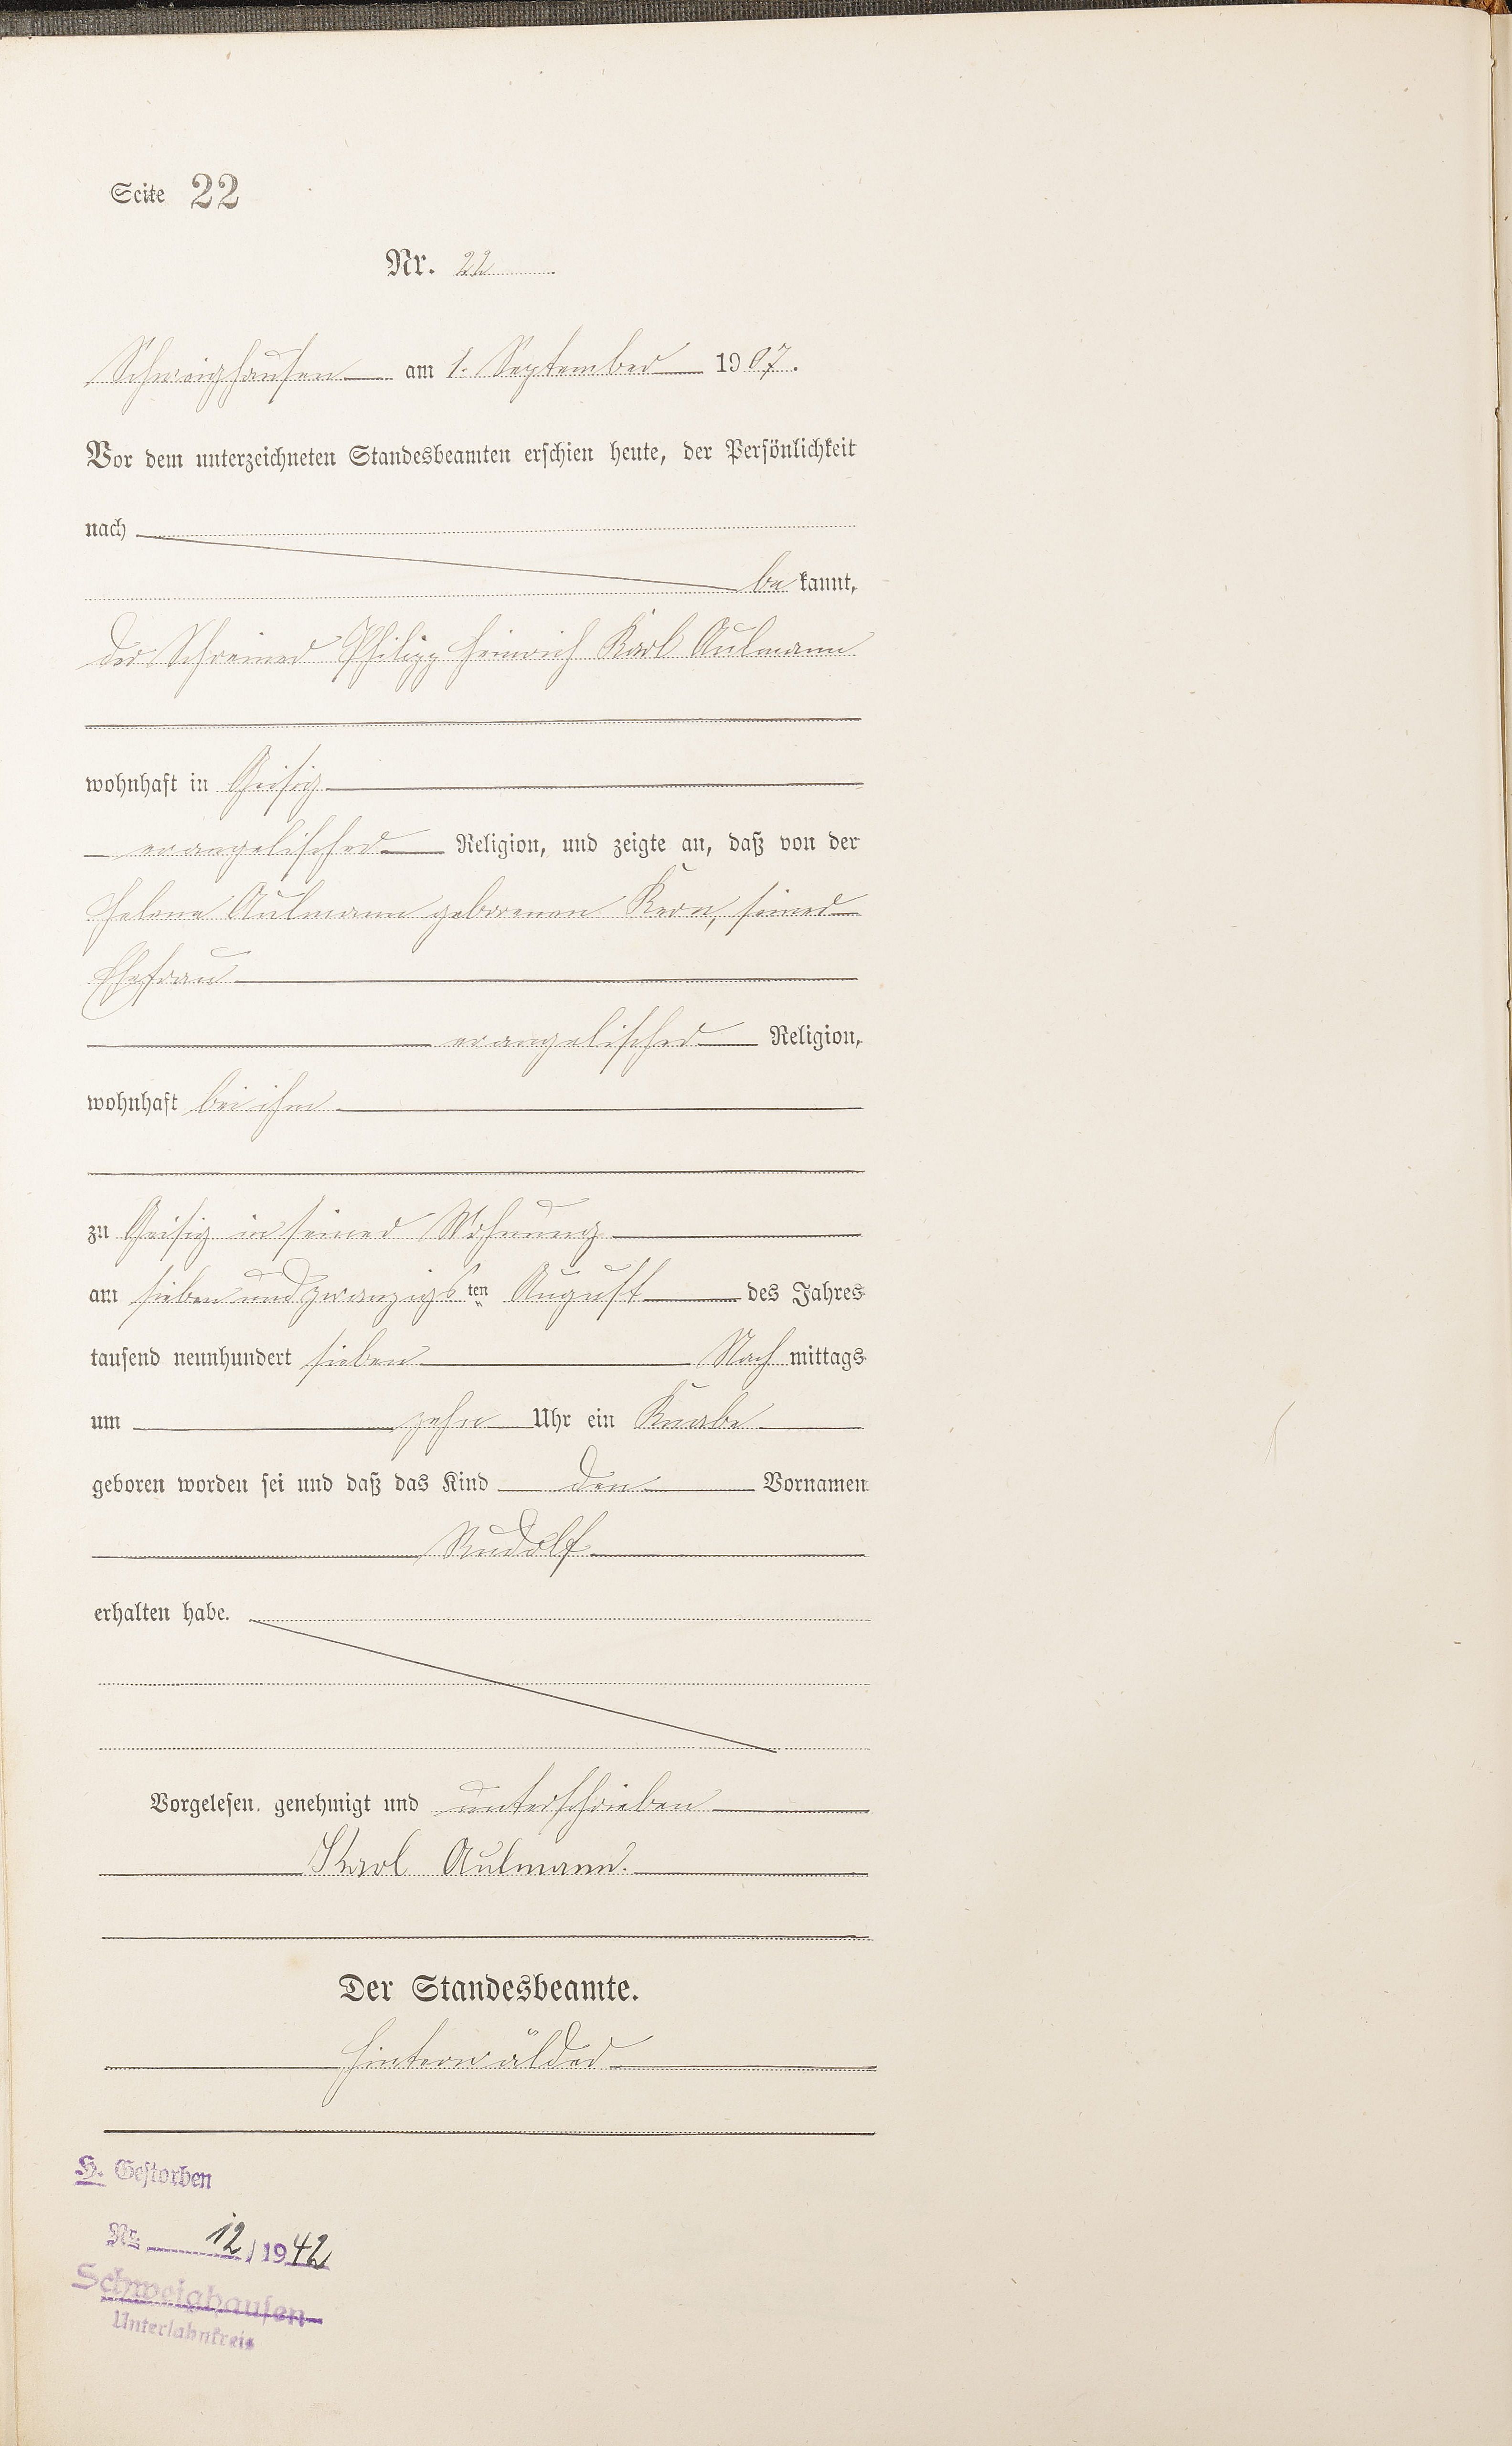 Seite 22
Nr. 22
Schweighausen am 1. September 1907.
Vor dem unterzeichneten Standesbeamten erschien heute, der Persönlichkeit
nach
bekannt,
der Schreiner Philipp Heinrich Karl Aulmann
wohnhaft in Geisig
evangelischer Religion, und zeigte an, daß von der
Helene Aulmann geborenen Kern, seiner
Ehefrau
evangelischer Religion,
wohnhaft bei ihm
zu Geisig in seiner Wohnung
am sieben und zwanzigsten August des Jahres
tausend neunhundert sieben Nachmittags
um zehn Uhr ein Knabe
geboren worden sei und daß das Kind den Vornamen
Rudolf
erhalten habe.
Vorgelesen, genehmigt und unterschrieben
Karl Aulmann.
Der Standesbeamte.
Hinterwälder
H. Gestorben
Nr. 12/1942
Schweighausen
Unterlahnkreis